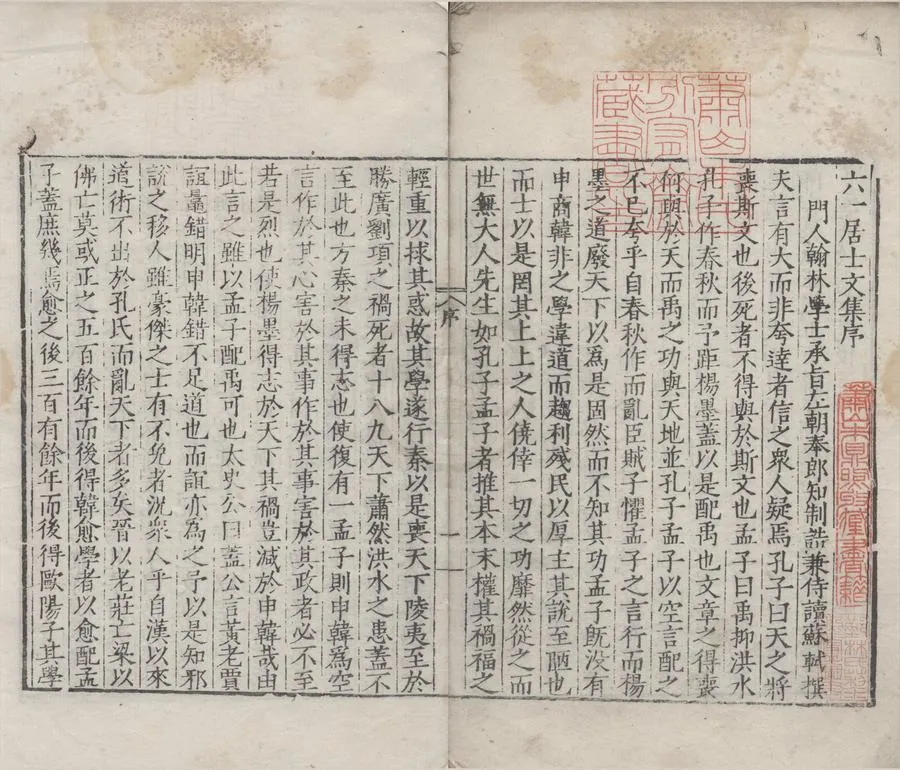 六一居士文集序
門人翰林學士承旨左朝奉郎知制誥兼侍讀蘇軾撰
夫言有大而非夸達者信之衆人疑焉孔子曰天之將
喪斯文也後死者不得與於斯文也孟子曰禹抑洪水
孔子作春秋而予距楊墨蓋以是配禹也文章之得喪
何與於天而禹之功與天地並孔子孟子以空言配之
不已夸乎自春秋作而亂臣賊子懼孟子之言行而楊
墨之道廢天下以為是固然而不知其功孟子既没有
申商韓非之學違道而趨利殘民以厚主其說至陋也
而士以是罔其上上之人僥倖一切之功靡然從之而
世無大人先生如孔子孟子者推其本末權其禍福之
序
一
輕重以捄其惑故其學遂行秦以是喪天下陵夷至於
勝廣劉項之禍死者十八九天下蕭然洪水之患蓋不
至此也方秦之未得志也使復有一孟子則申韓為空
言作於其心害於其事作於其事害於其政者必不至
若是烈也使楊墨得志於天下其禍豈減於申韓哉由
此言之雖以孟子配禹可也太史公曰蓋公言黃老賈
誼鼂錯明申韓錯不足道也而誼亦為之予以是知邪
說之移人雖豪傑之士有不免者況衆人乎自漢以來
道術不出於孔氏而亂天下者多矣晉以老莊亡梁以
佛亡莫或正之五百餘年而後得韓愈學者以愈配孟
子蓋庶幾焉愈之後三百有餘年而後得歐陽子其學